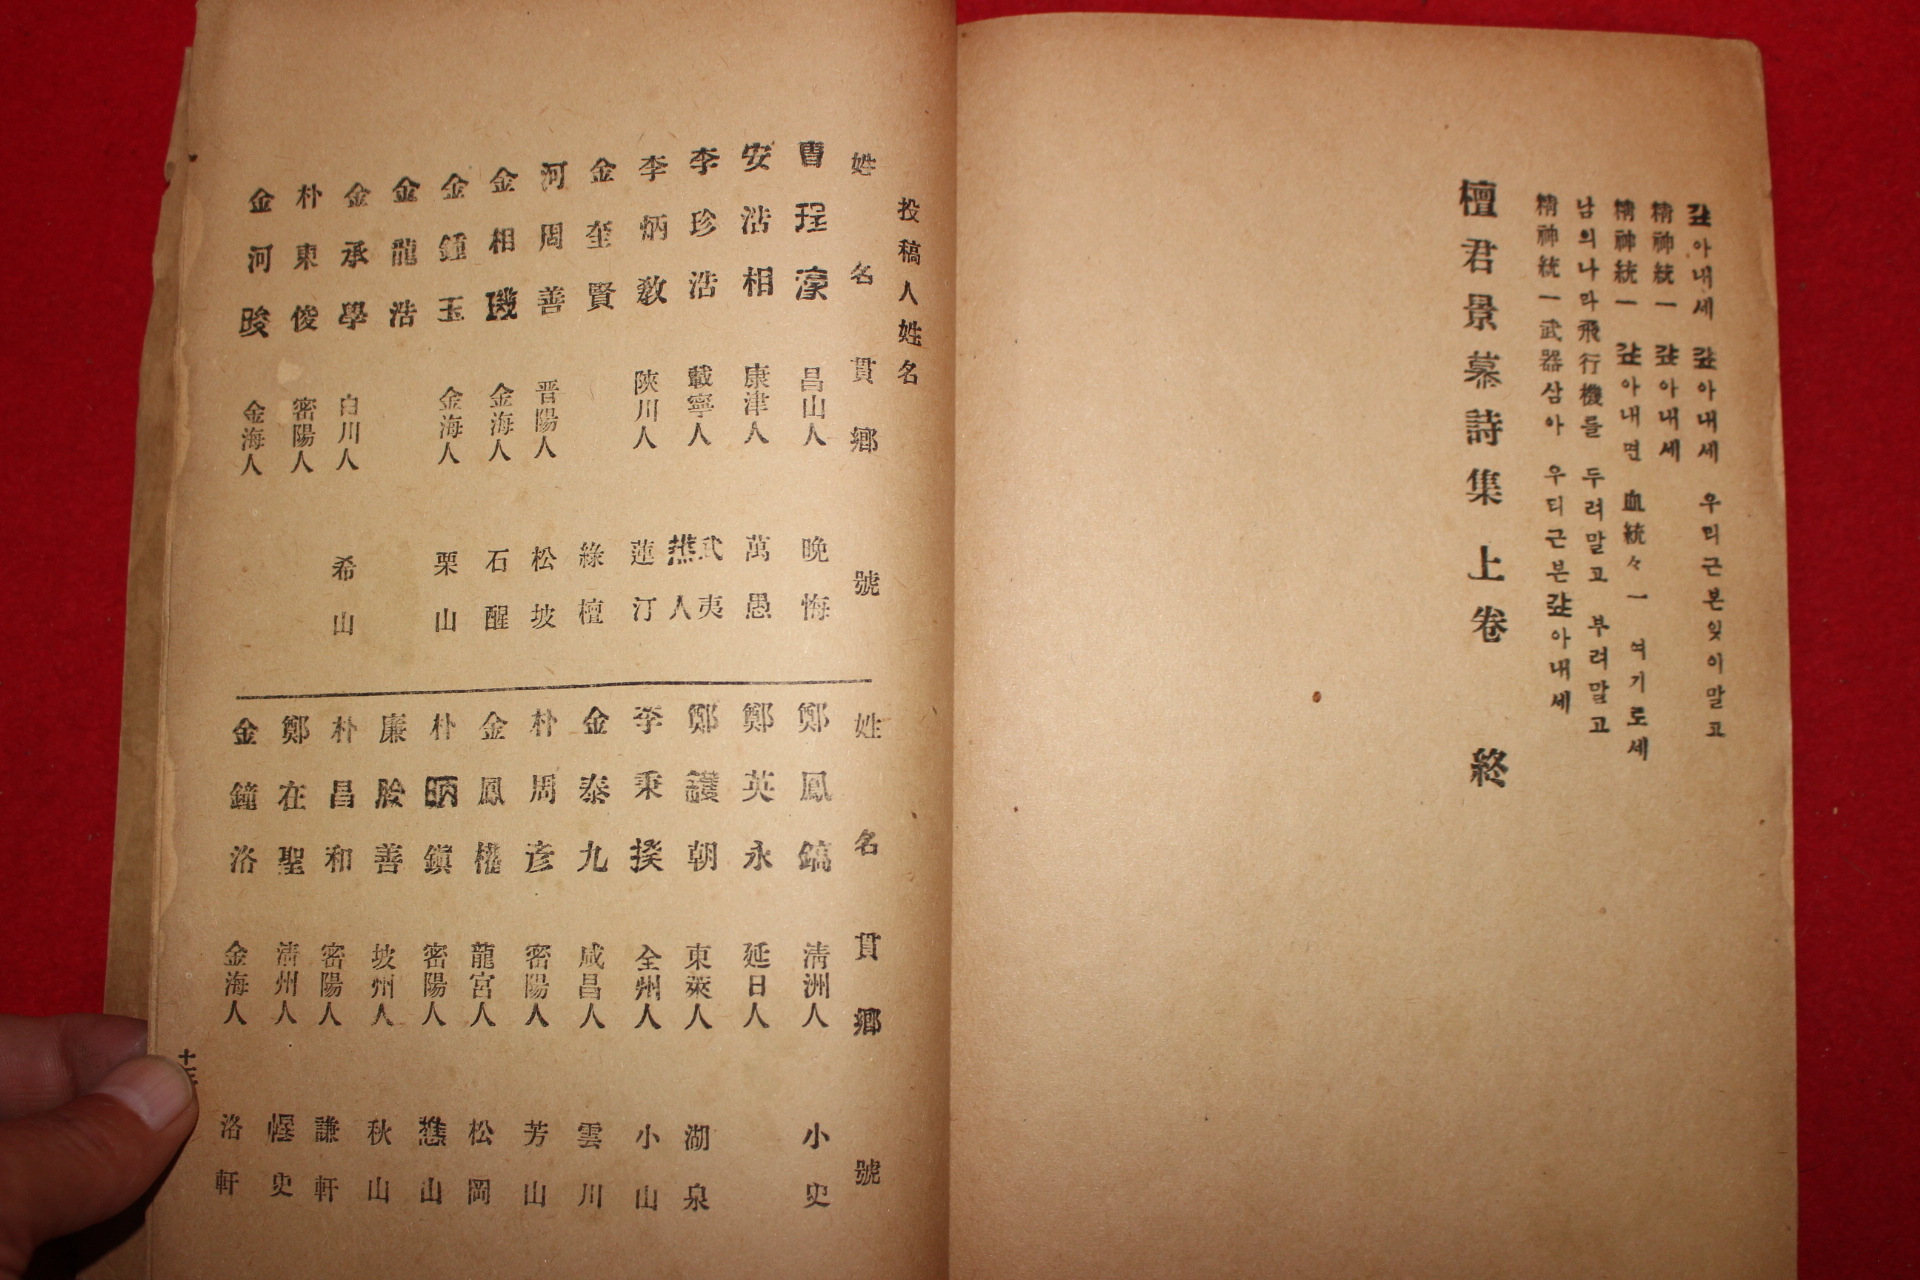 갚아내세 갚아내세 우리근본잊이말고
精神統一 갚아내세
精神統一 갚아내면 血統々一 여기로세
남의나라飛行機를 두려말고 부려말고
精神統一武器삼아 우리근본갚아내세
檀君景慕詩集 上卷 終
投稿人姓名
姓 名 貫 鄕 號
曺 珵 濠 昌山人 晩 悔
安 沾 相 康津人 萬 愚
李 珍 浩 載寧人 武夷 人
李 炳 敎 陜川人 蓮 汀
金 奎 賢 綠 檀
河 周 善 晋陽人 松 坡
金 相 璣 金海人 石 醒
金 鍾 玉 金海人 栗 山
金 龍 浩
金 承 學 白川人 希 山
朴 東 俊 密陽人
金 河 晙 金海人
姓 名 貫 鄕 號
鄭 鳳 鎬 淸洲人 小 史
鄭 英 永 延日人
鄭 護 朝 東萊人 湖 泉
李 秉 揆 全州人 小 山
金 泰 九 咸昌人 雲 川
朴 周 彦 密陽人 芳 山
金 鳳 權 龍宮人 松 岡
朴 昞 鎭 密陽人 樵 山
廉 善 坡州人 秋 山
朴 昌 和 密陽人 謙 軒
鄭 在 聖 淸州人 史
金 鐘 洛 金海人 洛 軒
十三